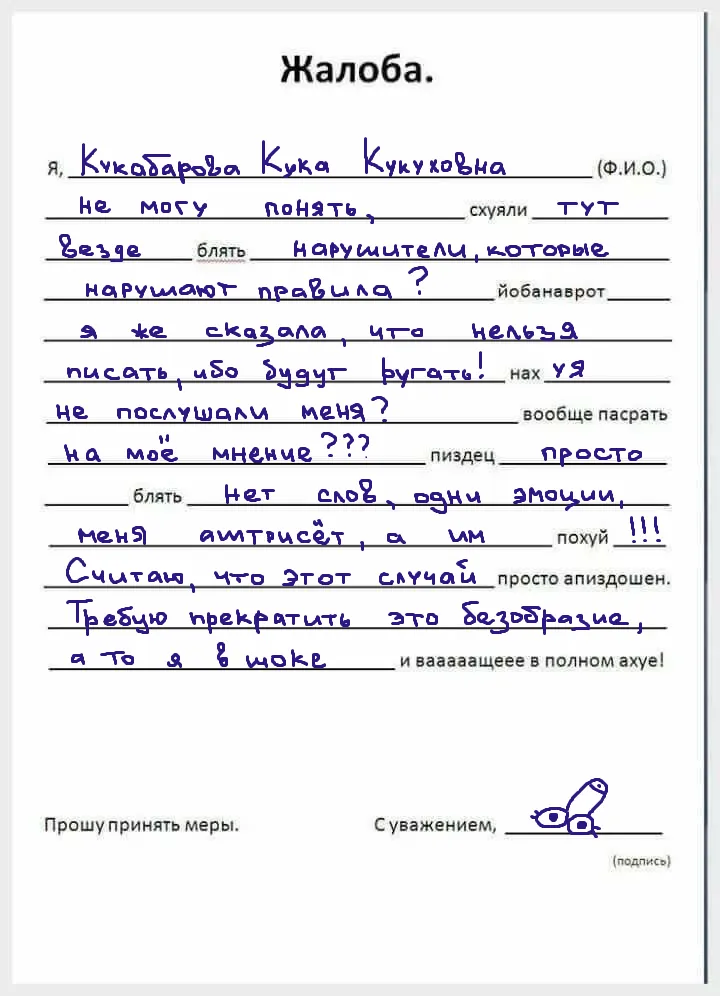 Жалоба.
Я, Кукабарова Кука Кукуховна (Ф.И.О.)
не могу понять, схуяли тут
везде блять нарушители, которые
нарушают правила? йобанаврот
я же сказала, что нельзя
писать, ибо будут ругать! нах уя
не послушали меня? вообще пасрать
на моё мнение??? пиздец просто
блять нет слов, одни эмоции,
меня аштрисёт, а им похуй !!!
Считаю, что этот случай просто апиздошен.
Требую прекратить это безобразие,
а то я в шоке и вааааащеее в полном ахуе!
Прошу принять меры. С уважением,
(подпись)